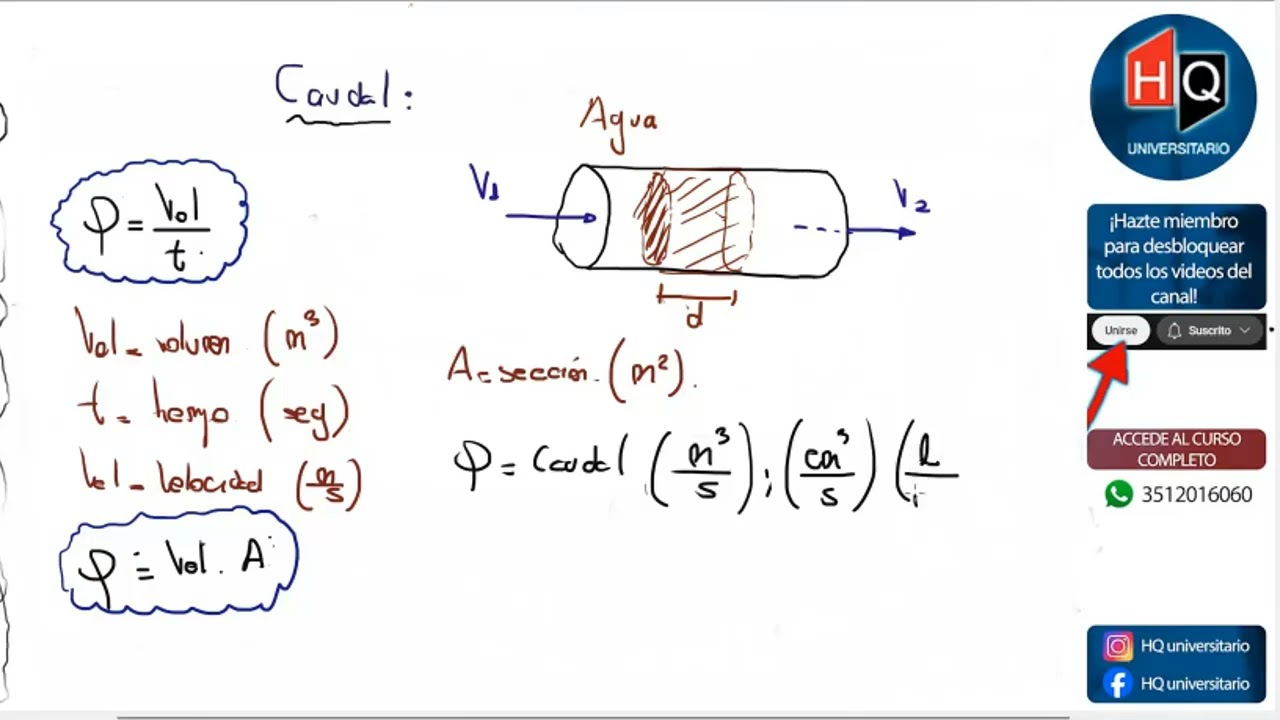 Caudal:
Agua
V1
V2
φ = Vol / t
d
Vol = volumen (m³)
t = tiempo (seg)
Vel = velocidad (m/s)
φ = Vel . A
A = sección. (m²).
φ = Caudal (m³/s) ; (cm³/s) (l/
HQ
UNIVERSITARIO
¡Hazte miembro
para desbloquear
todos los videos del
canal!
Unirse
Suscrito
ACCEDE AL CURSO
COMPLETO
3512016060
HQ universitario
HQ universitario